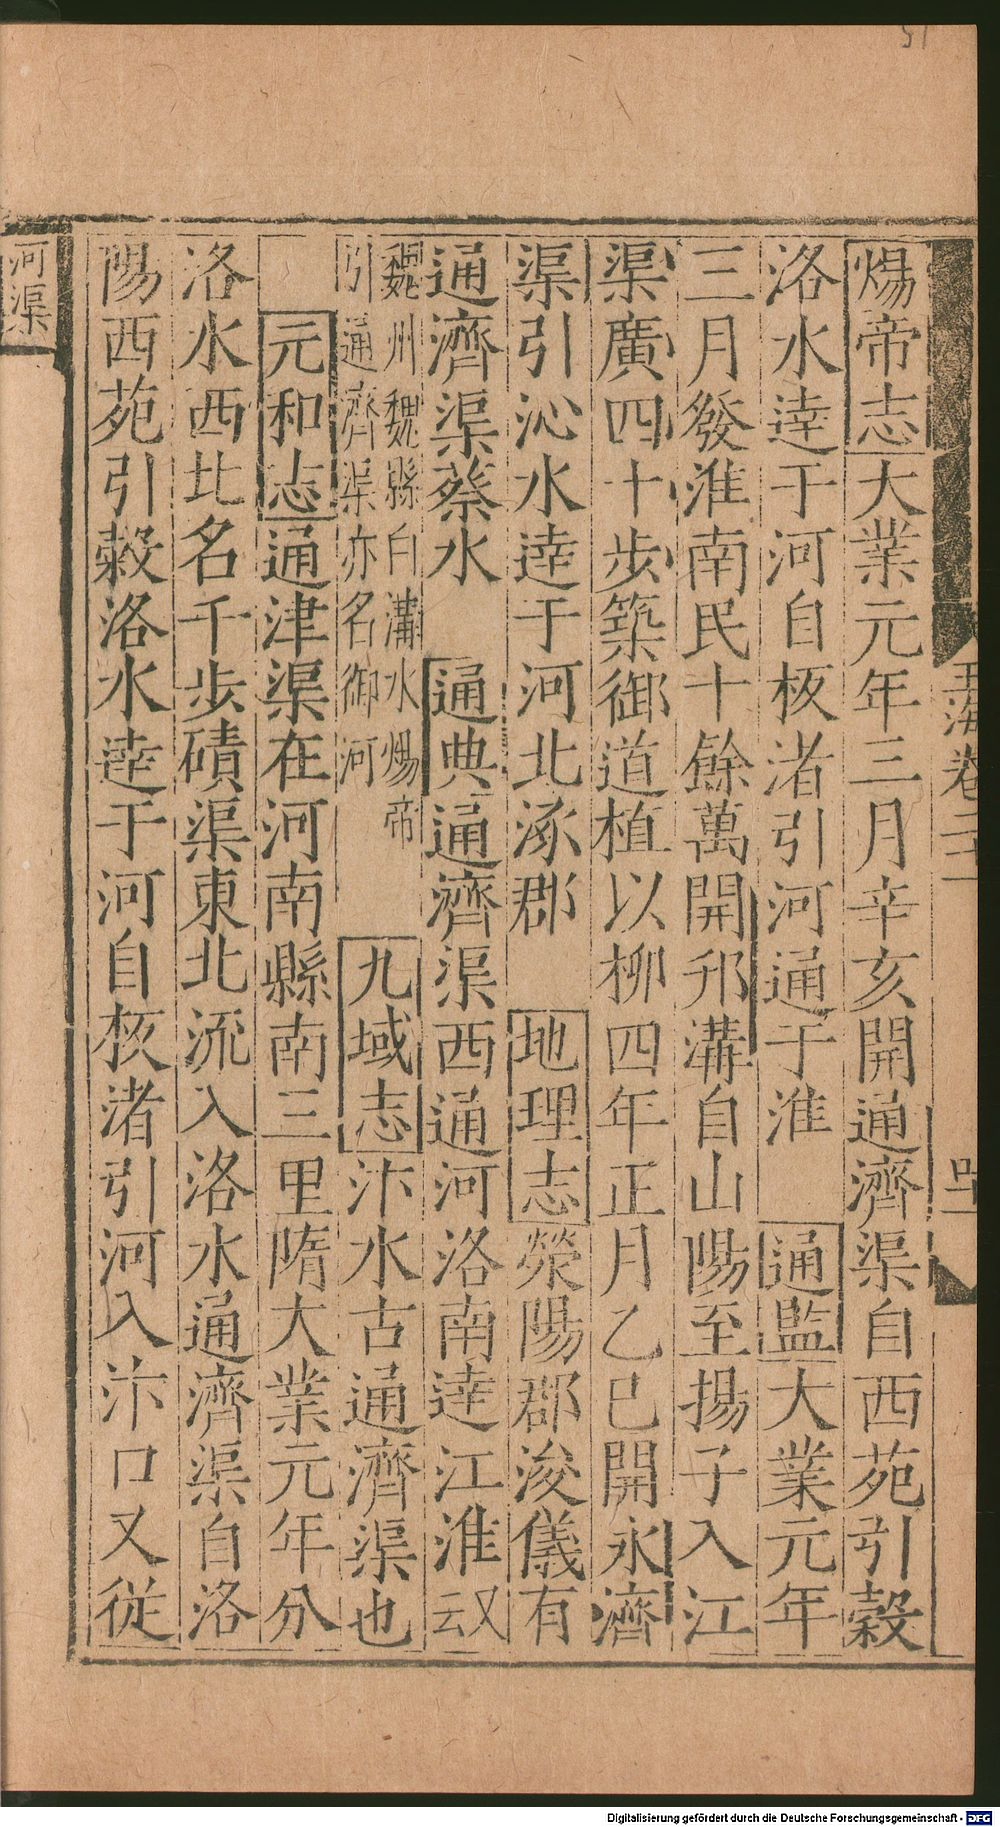 煬帝志大業元年三月辛亥開通濟渠自西苑引穀
洛水逹于河自板渚引河通于淮　通監大業元年
三月發淮南民十餘萬開邗溝自山陽至揚子入江
渠廣四十步築御道植以柳四年正月乙巳開永濟
渠引沁水逹于河北涿郡　地理志滎陽郡浚儀有
通濟渠蔡水　通典通濟渠西通河洛南逹江淮又云
魏州魏縣白溝水煬帝
引通濟渠亦名御河
九域志汴水古通濟渠也
元和志通津渠在河南縣南三里隋大業元年分
洛水西北名千步磧渠東北流入洛水通濟渠自洛
陽西苑引穀洛水逹于河自板渚引河入汴口又從
河渠
玉海卷二十
51
Digitalisierung gefördert durch die Deutsche Forschungsgemeinschaft - DFG